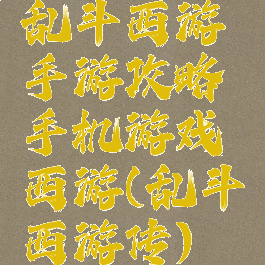 乱斗西游
手游攻略
手机游戏
西游(乱斗
西游传)